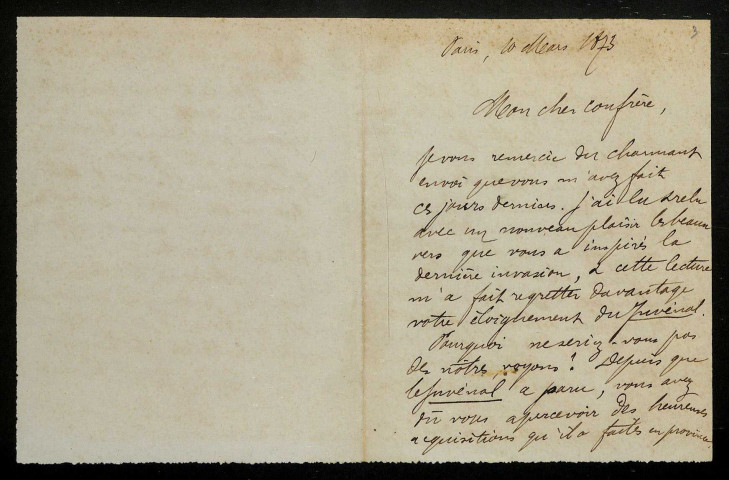 3
Paris, 10 Mars 1873
Mon cher confrère,
Je vous remercie du charmant
envoi que vous m'avez fait
ces jours derniers. J'ai lu & relu
avec un nouveau plaisir les beaux
vers que vous a inspirés la
dernière invasion, & cette lecture
m'a fait regretter davantage
votre éloignement du Juvénal.
Pourquoi ne seriez-vous pas
des nôtres, voyons ? Depuis que
le Juvénal a paru, vous avez
dû vous apercevoir des heureuses
acquisitions qu'il a faites en province